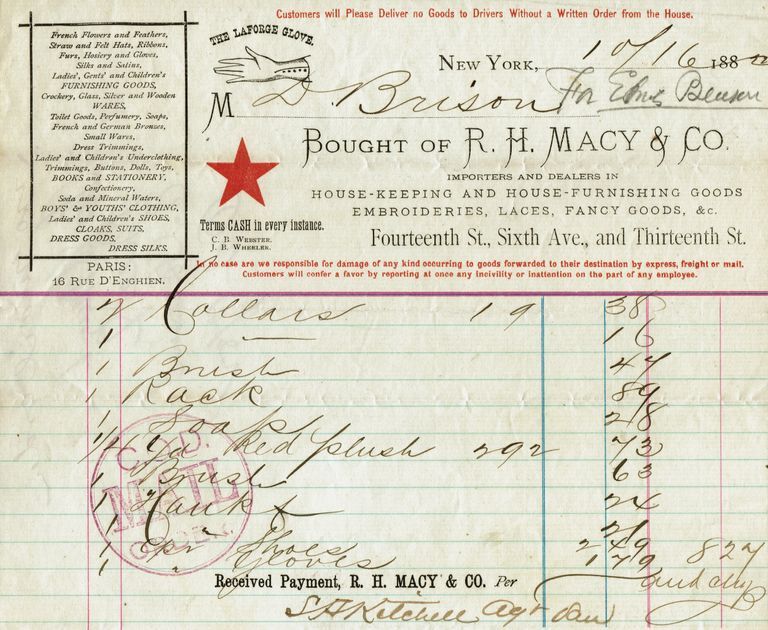 Customers will Please Deliver no Goods to Drivers Without a Written Order from the House.
French Flowers and Feathers,
Straw and Felt Hats, Ribbons,
Furs, Hosiery and Gloves,
Silks and Satins,
Ladies', Gents' and Children's
FURNISHING GOODS,
Crockery, Glass, Silver and Wooden
WARES,
Toilet Goods, Perfumery, Soaps,
French and German Bronzes,
Small Wares,
Dress Trimmings,
Ladies' and Children's Underclothing,
Trimmings, Buttons, Dolls, Toys,
BOOKS and STATIONERY,
Confectionery,
Soda and Mineral Waters,
BOYS' & YOUTHS' CLOTHING,
Ladies' and Children's SHOES,
CLOAKS, SUITS,
DRESS GOODS,
DRESS SILKS.
PARIS:
16 RUE D'ENGHIEN.
THE LAFORGE GLOVE.
NEW YORK, 10/16 188
M D. Brison For Benson
BOUGHT OF R. H. MACY & CO.
IMPORTERS AND DEALERS IN
HOUSE-KEEPING AND HOUSE-FURNISHING GOODS
EMBROIDERIES, LACES, FANCY GOODS, &c.
Terms CASH in every instance.
C. B. WEBSTER.
J. B. WHEELER.
Fourteenth St., Sixth Ave., and Thirteenth St.
In no case are we responsible for damage of any kind occurring to goods forwarded to their destination by express, freight or mail.
Customers will confer a favor by reporting at once any incivility or inattention on the part of any employee.
2 Collars 19 38
1 — 16
1 Brush 47
1 Rack 89
1 Soap 28
1/4 yd Red plush 292 73
1 Brush 63
1 Hankf 24
1 21
1 pr Shoes 249
1 " Gloves 179 827
C.O.D.
MAIL
ORDER.
Received Payment, R. H. MACY & CO. Per
S H Kitchell Agt